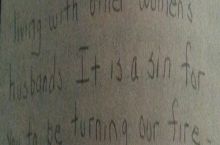 living with other women's
husbands. It is a sin for
you to be turning our fire-